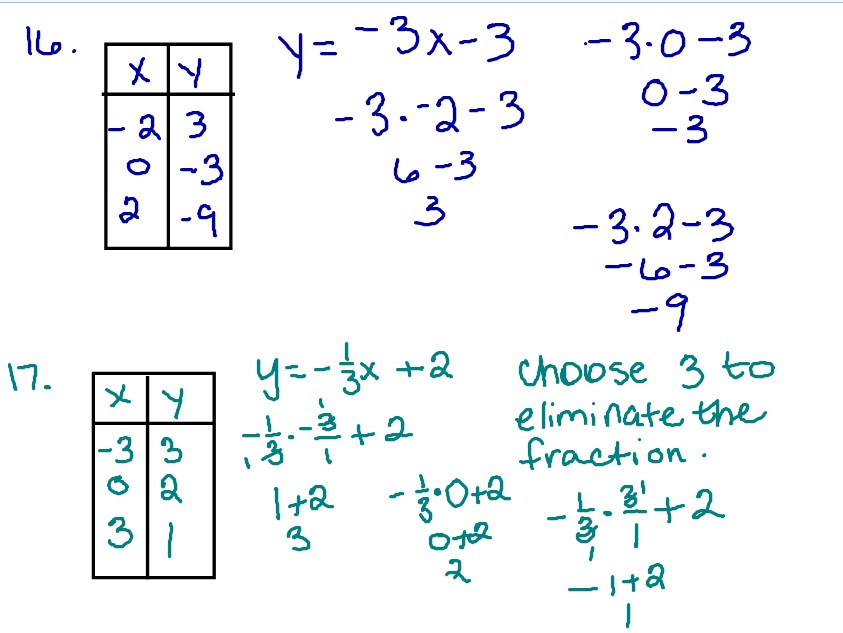 16.
x y
-2 3
0 -3
2 -9
y = -3x - 3
-3 · -2 - 3
6 - 3
3
-3 · 0 - 3
0 - 3
-3
-3 · 2 - 3
-6 - 3
-9
17.
x y
-3 3
0 2
3 1
y = -1/3x + 2
-1/3 · -3/1 + 2
1 1
1 + 2
3
-1/3 · 0 + 2
0 + 2
2
choose 3 to
eliminate the
fraction.
-1/3 · 3/1 + 2
1 1
-1 + 2
1